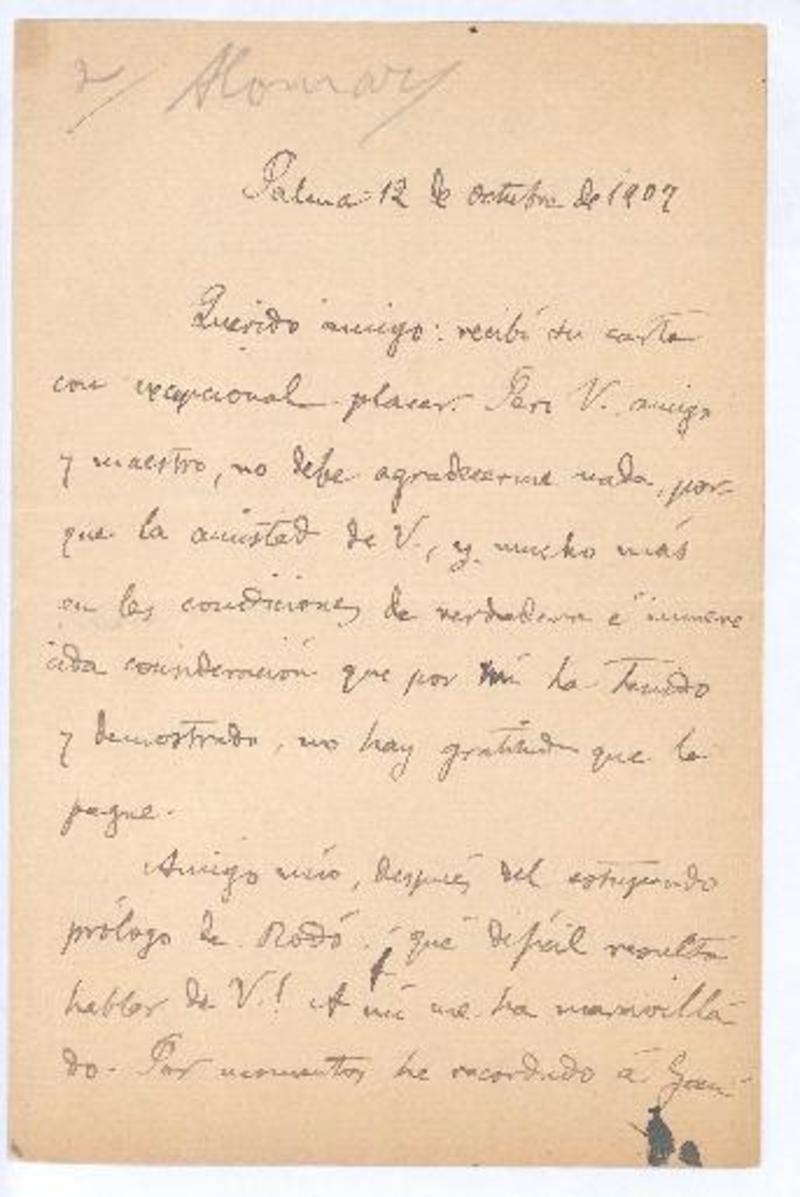 2/ Alomar/
Palma 12 de octubre de 1907
Querido amigo: recibí su carta
con excepcional placer. Pero V. amigo
y maestro, no debe agradecerme nada, por-
que la amistad de V., y mucho más
en las condiciones de verdadera é inmere
cida consideración que por mí ha tenido
y demostrado, no hay gratitud que la
pague.
Amigo mío, después del estupendo
prólogo de Rodó ¡qué difícil resulta
hablar de V.! A mí me ha maravilla-
do. Por momentos he recordado á